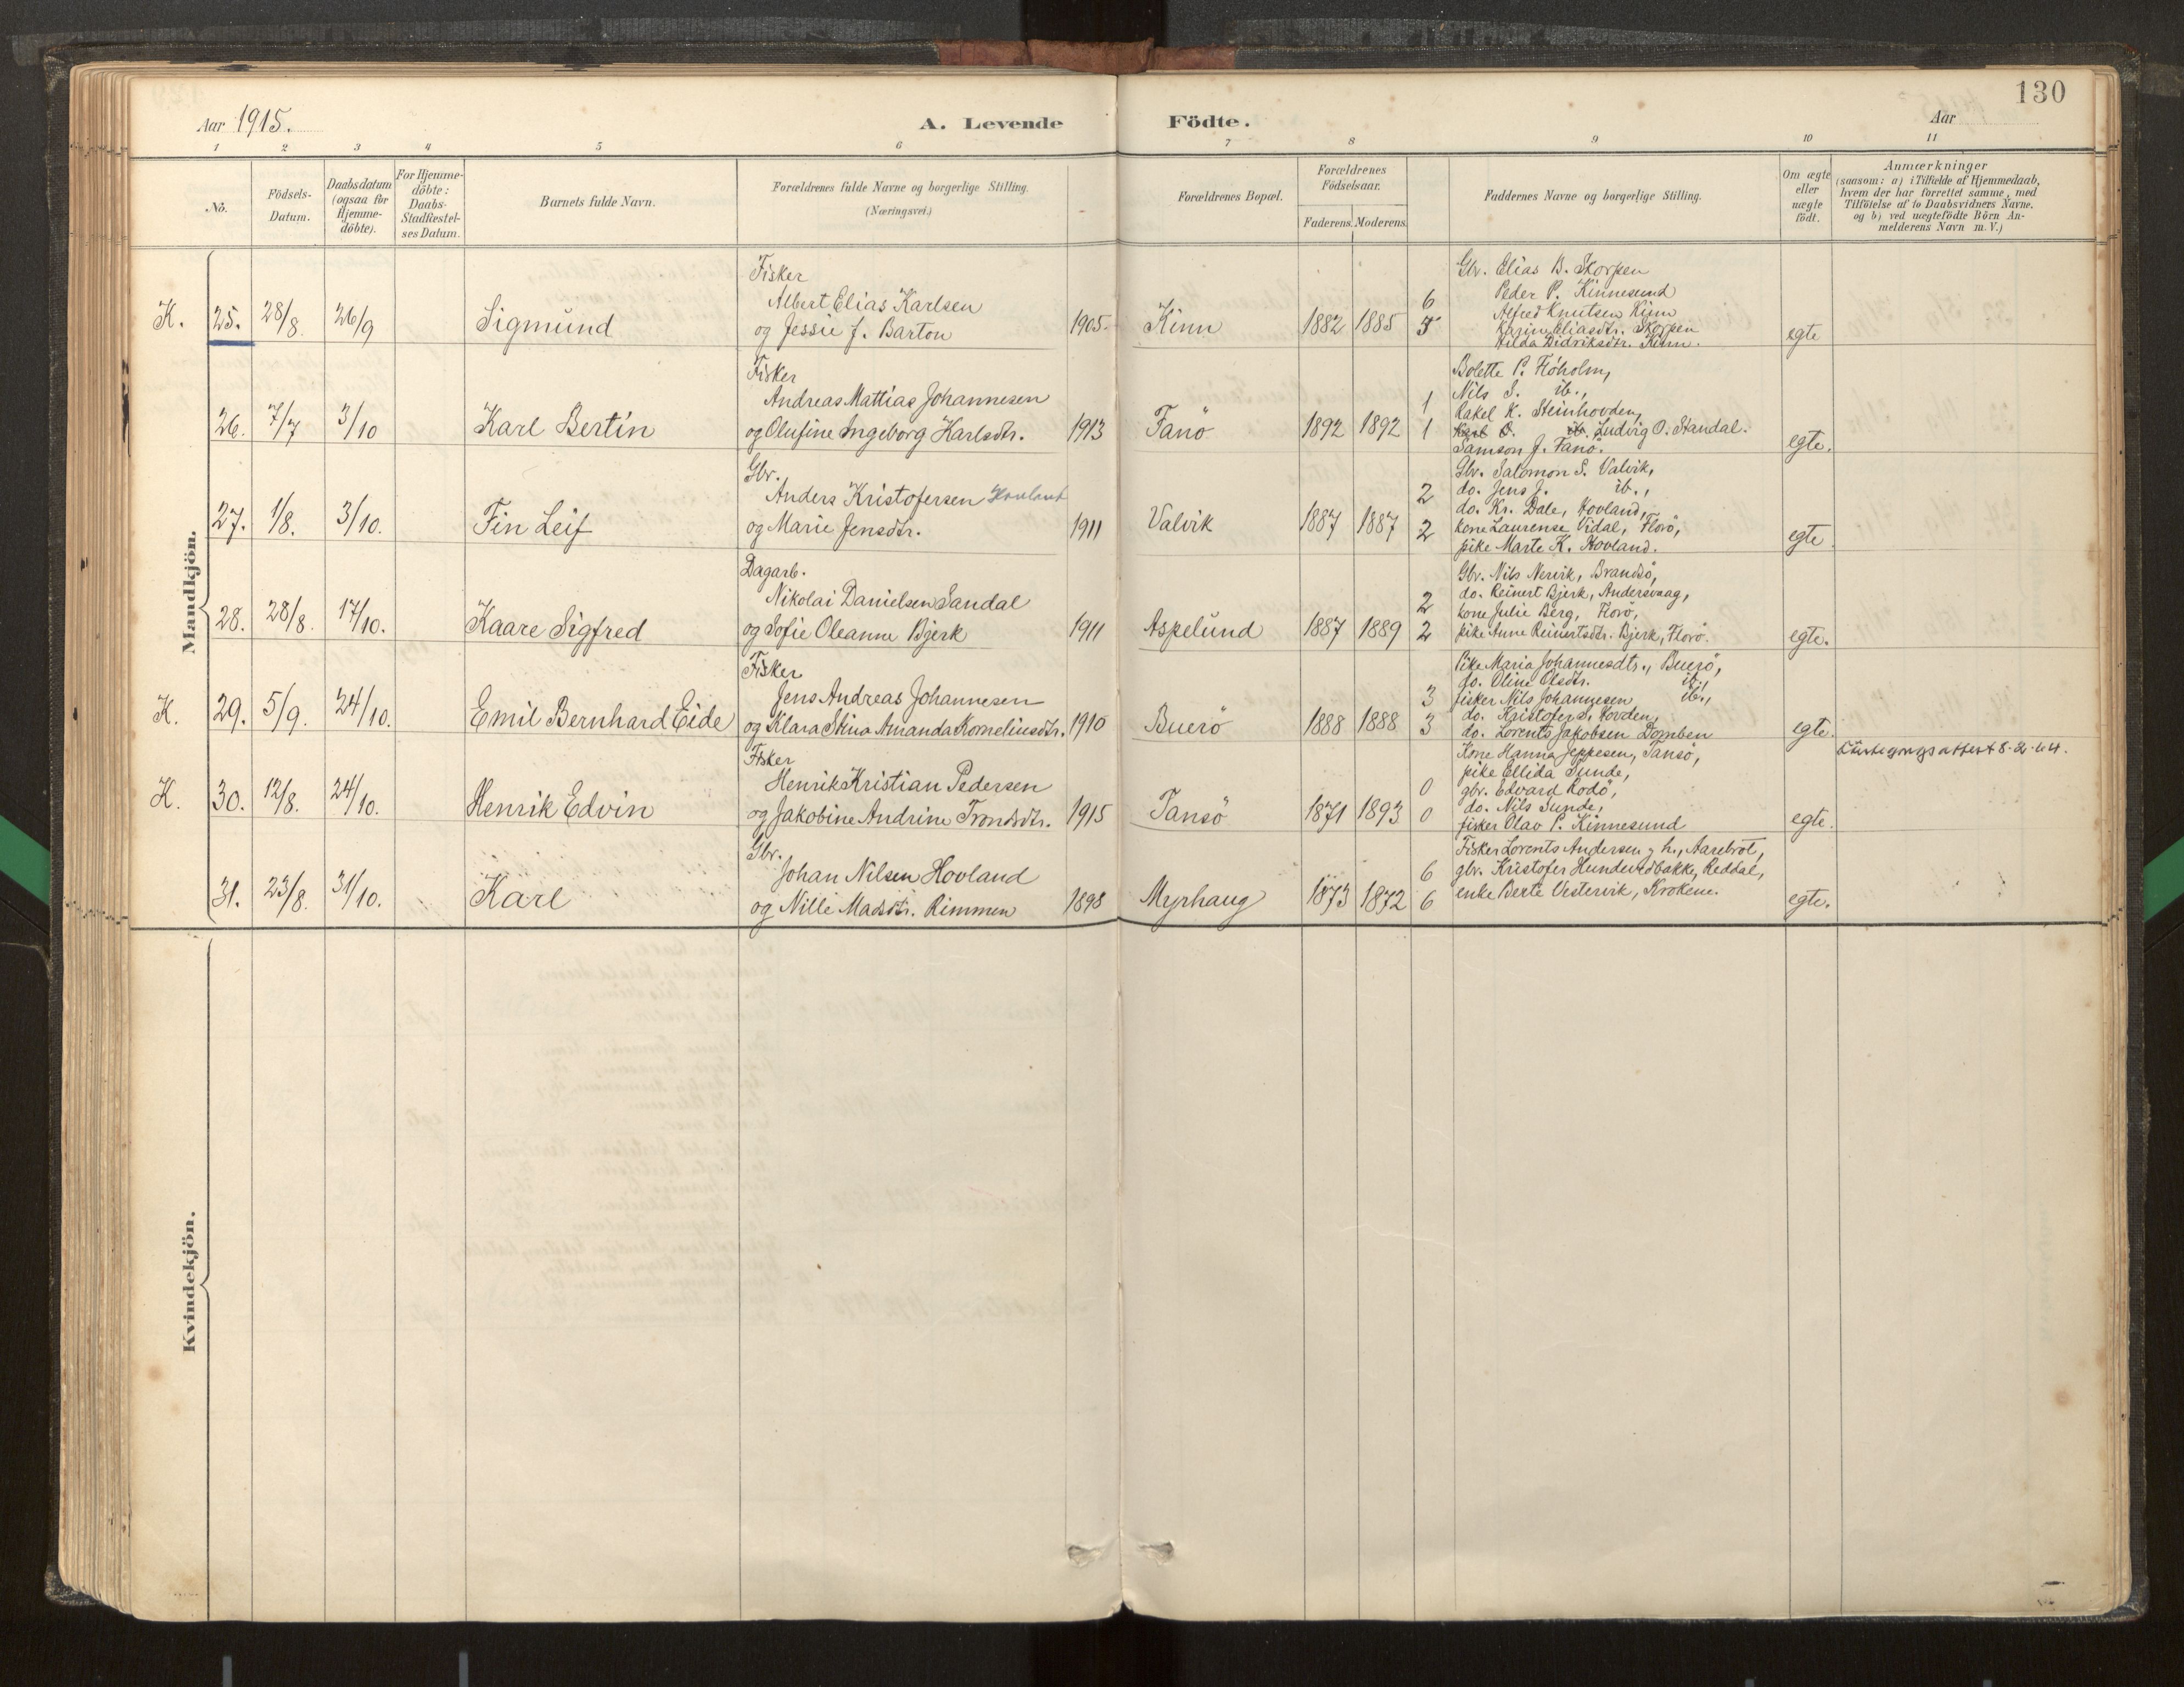 130
Aar 1915.
A. Levende Födte.
Aar
1 2 3 4 5 6 7 8 9 10 11
Nô.
Födsels-
Datum.
Daabsdatum
(ogsaa for
Hjemme-
döbte).
For Hjemme-
döbte:
Daabs-
Stadfæstel-
ses Datum.
Barnets fulde Navn.
Forældrenes fulde Navne og borgerlige Stilling.
(Næringsvei.)
Forældrenes Bopæl.
Forældrenes
Födselsaar.
Faderens. Moderens.
Faddernes Navne og borgerlige Stilling.
Om ægte
eller
uægte
födt.
Anmærkninger
(saasom: a) i Tilfælde af Hjemmedaab,
hvem der har forrettet samme, med
Tilföielse af to Daabsvidners Navne.
og b) ved uægtefödte Börn An-
melderens Navn m. V.)
Mandkjön.
K. 25. 28/8. 26/9 Sigmund
Fisker
Albert Elias Karlsen
og Jessie J. Barton 1905.
Kinn 1882 1885 6
Gbr. Elias B. Skorpen
Peder P. Kinnesund
Alfred Knutsen Kinn
Karin Eliasdtr. Skorpen
Hilda Didriksdtr. Kinn.
egte
26. 7/7 3/10 Karl Bertin
Fisker
Andreas Mattias Johannesen
og Olufine Ingeborg Karlsdtr. 1913
Fanö 1892 1892 1 1
Bolette P. Flöholm,
Nils S. ib.,
Rakel K. Steinhovden,
Karl O. ib. Ludvig O. Standal.
Samson J. Fanö.
egte.
27. 1/8. 3/10. Fin Leif
Gbr.
Anders Kristofersen Hovland
og Marie Jensdtr. 1911
Valvik 1887 1887 2 2
Gbr. Salomon S. Valvik,
do. Jens J. ib.,
do. Kr. Dale, Hovland,
kone Laurense Vidal, Florö,
pike Marte K. Hovland.
egte.
28. 28/8. 17/10. Kaare Sigfred
Dagarb.
Nikolai Danielsen Sandal
og Sofie Oleanne Bjerk 1911
Aspelund 1887 1889 2 2
Gbr. Nils Nervik, Brandsö,
do. Reinert Bjerk, Andersvaag,
kone Julie Berg, Florö,
pike Anne Reinertsdtr. Bjerk, Florö.
egte.
K. 29. 5/9. 24/10. Emil Bernhard Eide
Fisker
Jens Andreas Johannesen
og Klara Stina Amanda Korneliusdtr. 1910
Bueröˈ 1888 1888 3 3
Pike Maria Johannesdtr., Buerö,
do. Oline Olsdtr. ib.,
fisker Nils Johannesen ib.,
do. Kristofer S. Hovden,
do. Lorents Jakobsen Domben
egte.
K. 30. 12/8. 24/10. Henrik Edvin
Fisker
Henrik Kristian Pedersen
og Jakobine Andrine Trondsdtr. 1915
Tansö 1871 1893 0 0
Kone Hanna Jeppesen, Tansö,
pike Ellida Sunde,
gbr. Edvard Rodö,
do. Nils Sunde,
fisker Olav P. Kinnesund
egte.
31. 23/8. 31/10. Karl
Gbr.
Johan Nilsen Hovland
og Nille Madsdtr. Rimmen 1898
Myrhaug 1873 1872 6 6
Fisker Lorents Andersen g h., Aarebrot,
gbr. Kristofer Hundvedbakke, Reddal,
enke Berte Vestervik, Krokene.
egte.
Kvindekjön.